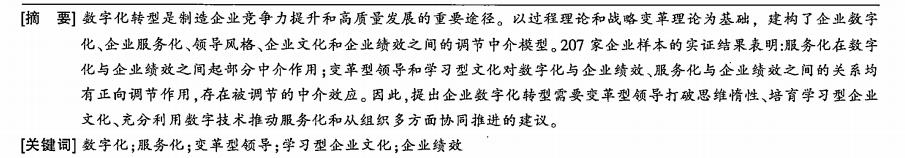 [摘　要] 数字化转型是制造企业竞争力提升和高质量发展的重要途径。以过程理论和战略变革理论为基础，建构了企业数字
化、企业服务化、领导风格、企业文化和企业绩效之间的调节中介模型。207 家企业样本的实证结果表明:服务化在数字
化与企业绩效之间起部分中介作用;变革型领导和学习型文化对数字化与企业绩效、服务化与企业绩效之间的关系均
有正向调节作用,存在被调节的中介效应。因此,提出企业数字化转型需要变革型领导打破思维惰性、培育学习型企业
文化、充分利用数字技术推动服务化和从组织多方面协同推进的建议。
[关键词] 数字化;服务化;变革型领导;学习型企业文化;企业绩效